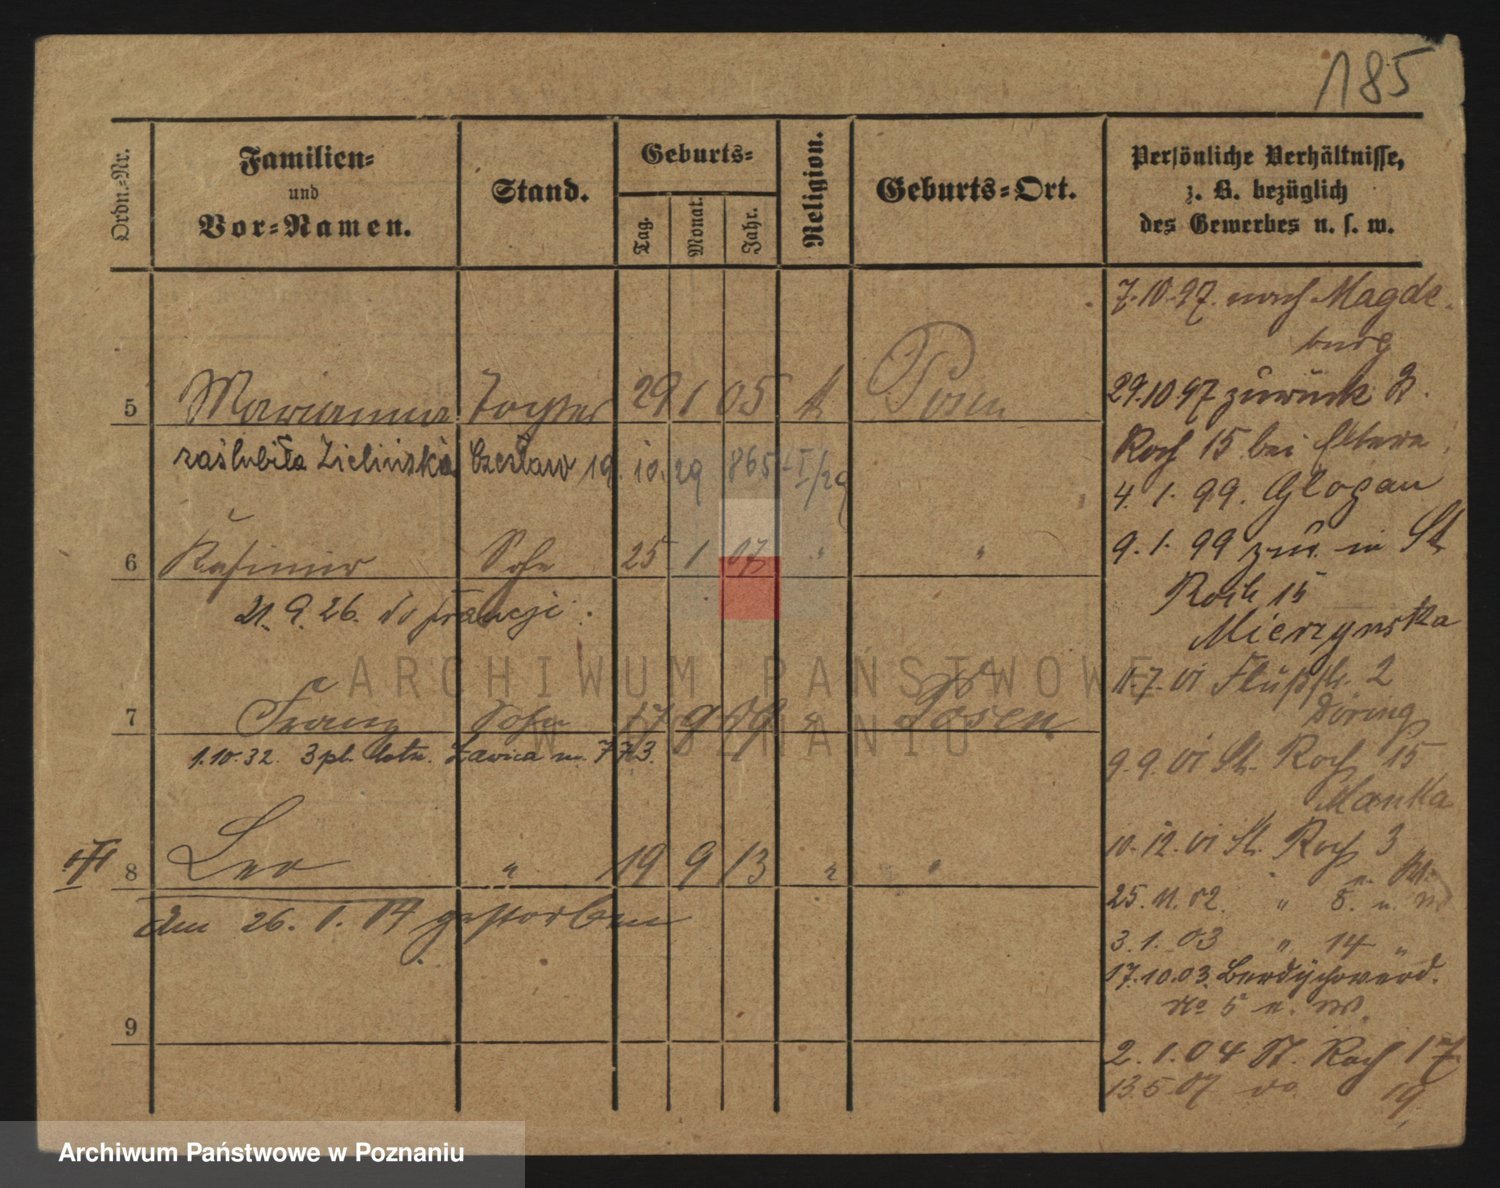 185
Ordn.-Nr.
Familien-
und
Vor-Namen.
Stand.
Geburts-
Tag.
Monat.
Jahr.
Religion.
Geburts-Ort.
Persönliche Verhältnisse,
z. B. bezüglich
des Gewerbes u. s. w.
7.10.97. nach Magde-
burg
5 Marianna Tochter 29 1 05 k Posen
29.10 97 zurück
zaślubiła Zieliński Czesław 19.10.29 865 I/29
Roch 15 bei Eltern
4. 1. 99. Glogau
6 Kasimir Sohn 25 1 07 " "
9. 1. 99 zur. in St
Roch 15
21. 9. 26. do Francji.
Mierzynska
11.7.01 Flußstr. 2
7 Franz Sohn 17 9 Posen
Döring
1.10.32. 3 pl. lotn. Ławica 773.
9.9.01 St. Roch 15
Manka
10.12.01 St. Roch 3
8 Leo " 19 9 13 " "
25.11.02. " 8.
am 26. 1. 14 gestorben
3.1.03 " 14 "
17.10.03. Berdychowerd.
No 5
9
2.1.04 St. Roch 17
13.5.07 do 19
ARCHIWUM PAŃSTWOWE
W POZNANIU
Archiwum Państwowe w Poznaniu